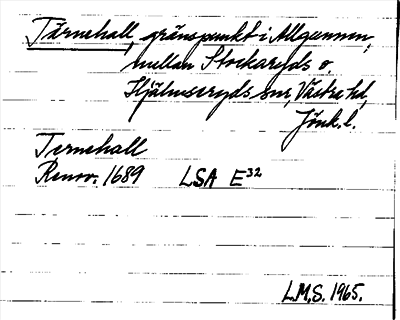 Tärnehall, gränspunkt i Allgunnen,
mellan Stockaryds o.
Hjälmseryds snr, Västra hd,
Jönk. l.
Ternehall
Renov. 1689 LSA E³²
L.M.S. 1965.